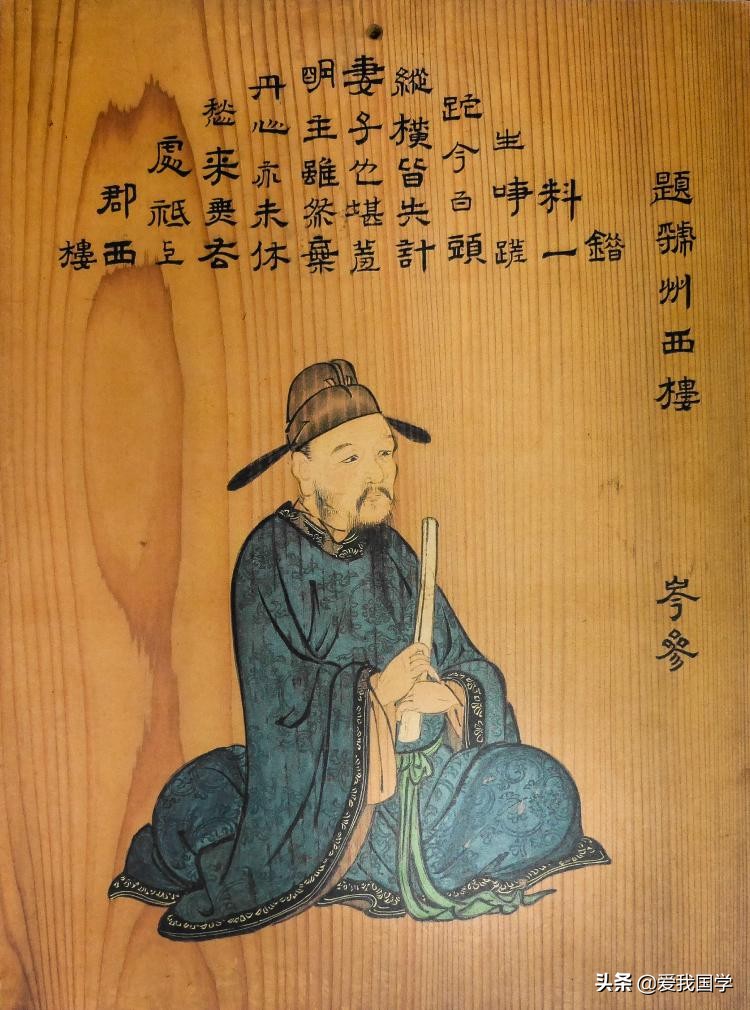 題虢州西樓
岑參
錯
料一
生事蹉
跎今白頭
縱橫皆失計
妻子也堪羞
明主雖然棄
丹心亦未休
愁来無去
處祗上
郡西
樓
头条 @爱我国学